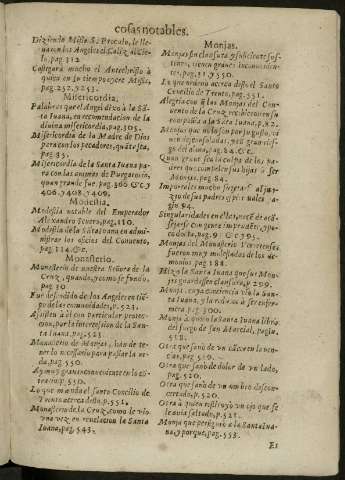 cosas notables.
Diziendo Missa S. Proculo, se lle-
uaron los Angeles el Caliz al Cie-
lo, pag. 312.
Castigarà mucho el Antechristo à
quien en su tiempo oyere Missa,
pag. 252. y 253.
Misericordia.
Palabras que el Angel dixo à la Sã-
ta Iuana, en recomendacion de la
diuina misericordia, pag. 305.
Misericordia de la Madre de Dios
para con los pecadores, quãta sea,
pag. 85.
Misericordia de la Santa Iuana pa-
ra con las animas de Purgatorio,
quan grande fue, pag. 366 &c. y
406. y 408. y 409.
Modestia.
Modestia notable del Emperador
Alexandro Seuero, pag. 110.
Modestia de la Sãta Iuana en admi-
nistrar los oficios del Conuento,
pag. 114. &c.
Monasterio.
Monasterio de nuestra Señora de la
Cruz, quando, y como se fundò,
pag. 30
Fue defendido de los Angeles en tiẽ-
po de las comunidades, p. 521.
Assisten à èl con particular protec-
cion, por la intercession de la San-
ta Iuana, pag. 523.
Monasterio de Monjas, han de te-
ner lo necessario para passar la vi-
da, pag. 550.
Ay muy grandes inconuenientes en lo cõ-
trario, p. 550.
Lo que manda el santo Concilio de
Trento acerca desto, p. 551.
Monasterio de la Cruz, como le viò
vna vez en reuelacion la Santa
Iuana, pag. 543.
Monjas.
Monjas sin clausura y suficiente sus-
tento, tienen grandes inconuenien-
tes, pag. 31. y 550.
Lo que ordena acerca desto el Santo
Concilio de Trento, pag. 551.
Alegria con que las Monjas del Con-
uento de la Cruz recibieron en su
compañia à la Sãta Iuana, p. 92.
Monjas que no lo son por su gusto, vi-
uen desconsoladas, y con gran ries-
go del alma, pag. 84. &c.
Quan grande sea la culpa de los pa-
dres que compelen sus hijas à ser
Monjas, pag. 84.
Importales mucho sujetarse al jui-
zio de sus padres espirituales, pa-
gin. 94.
Singularidades en el comer, &c. de acõ-
sejarse con gente imprudente, y po-
co docta, pag. 91. &c. y 95.
Monjas del Monasterio Vvertetense,
fueron muy molestadas de los de-
monios, pag. 184.
Hizo la Santa Iuana que sus Mon-
jas guardassen clausura, p. 299.
Monja, cuya conciencia viò la San-
ta Iuana, y la reduxo de ser enfer-
mera, pag. 300.
Monja à quien la Santa Iuana librò
del fuego de san Marcial, pagin.
518.
Otra que sanò de vn cãcer en la len-
gua, pag. 519.
Otra que sanò de dolor de vn lado,
pag. 520.
Otra que sanò de vn ombro descon-
certado, pag. 520.
Otra à quien restituyò vn ojo que se
le auia saltado, p. 521.
Monja que persiguiò à la Santa Iua-
na, y porquè, pag. 553.
Es